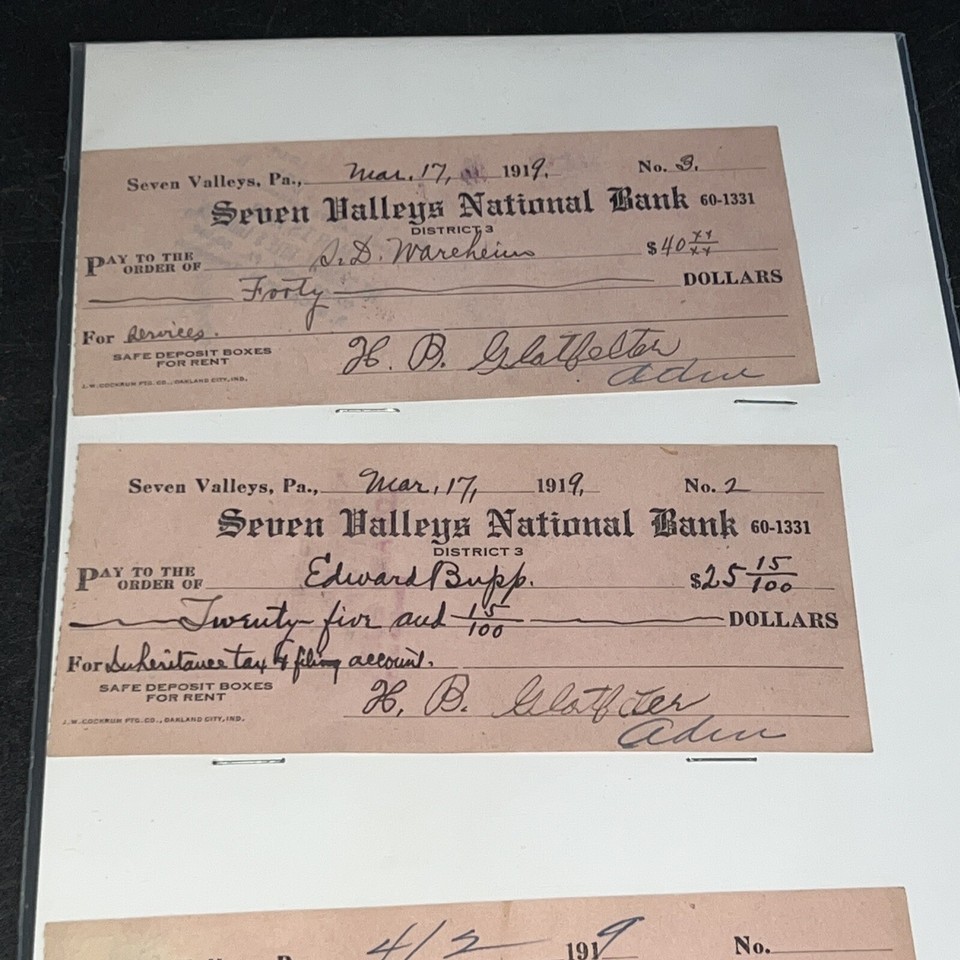 Seven Valleys, Pa., Mar. 17, 1919. No. 3.
Seven Valleys National Bank 60-1331
DISTRICT 3
PAY TO THE ORDER OF S. D. Wareheim $40 xx/xx
Forty DOLLARS
For Services.
SAFE DEPOSIT BOXES
FOR RENT
H. B. Glatfelter
Adm
J.W. COCKRUM PTG. CO., OAKLAND CITY, IND.
Seven Valleys, Pa., Mar. 17, 1919. No. 2
Seven Valleys National Bank 60-1331
DISTRICT 3
PAY TO THE ORDER OF Edward Bupp. $25 15/100
Twenty five and 15/100 DOLLARS
For Inheritance tax & filing account.
SAFE DEPOSIT BOXES
FOR RENT
H. B. Glatfelter
Adm
J.W. COCKRUM PTG. CO., OAKLAND CITY, IND.
4/2 1919 No.